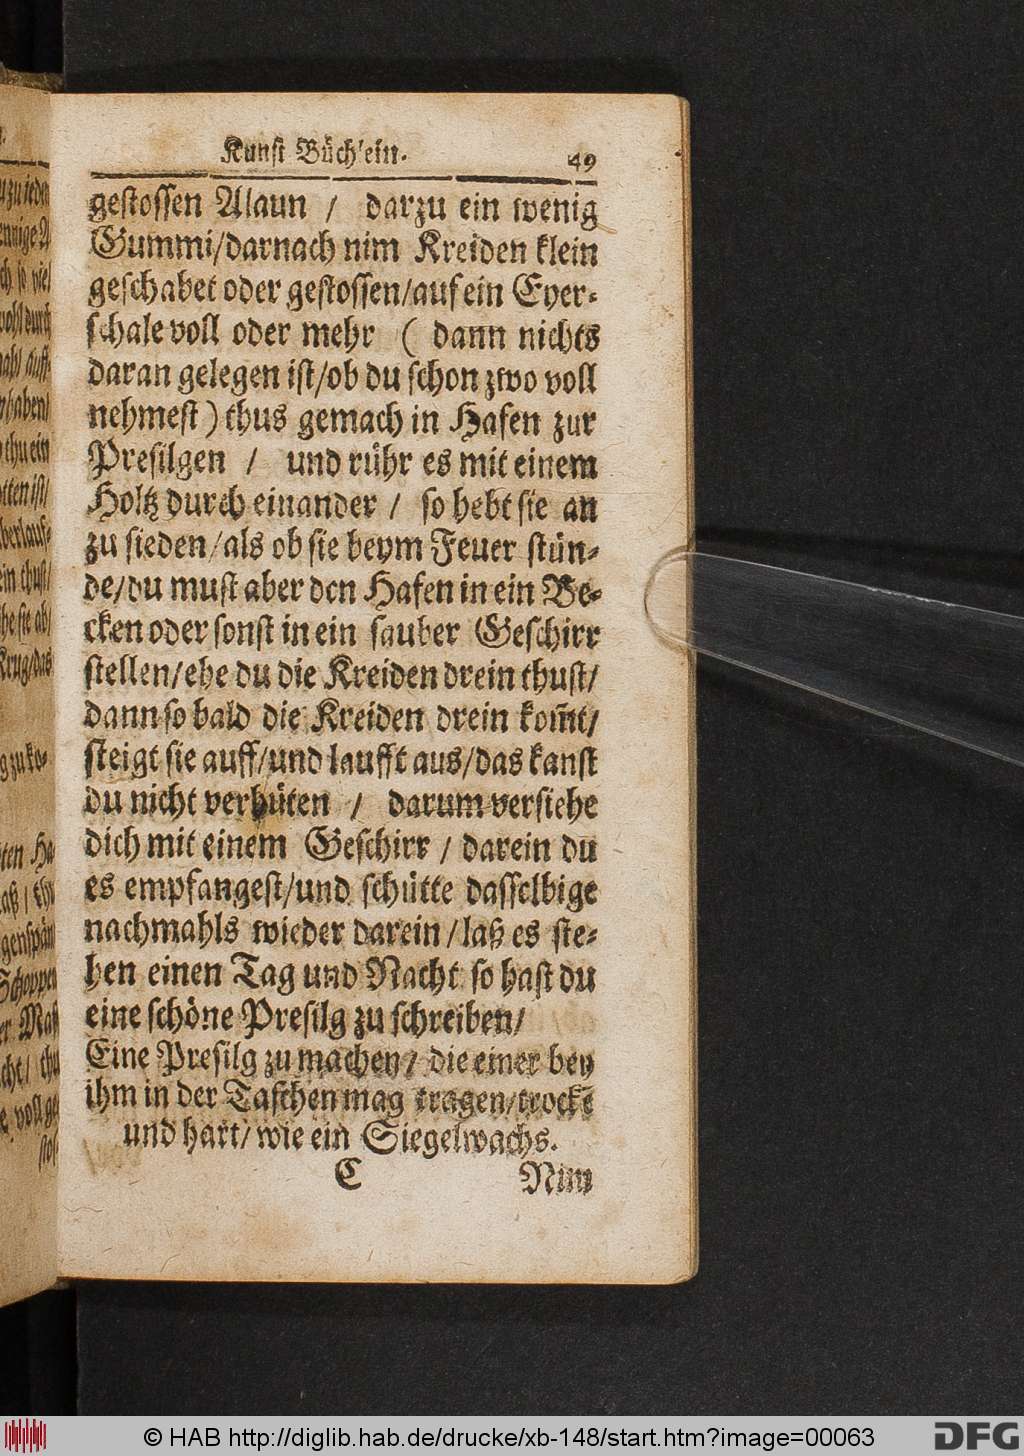 Kunst Büchlein. 49
gestossen Alaun / darzu ein wenig
Gummi/darnach nim Kreiden klein
geschabet oder gestossen/auf ein Eyer-
schale voll oder mehr ( dann nichts
daran gelegen ist/ob du schon zwo voll
nehmest ) thus gemach in Hafen zur
Presilgen / und rühr es mit einem
Holtz durch einander / so hebt sie an
zu sieden/als ob sie beym Feuer stün-
de/du must aber den Hafen in ein Be-
cken oder sonst in ein sauber Geschirr
stellen/ehe du die Kreiden drein thust/
dann so bald die Kreiden drein kom̃t/
steigt sie auff/und laufft aus/das kanst
du nicht verhüten / darum versiehe
dich mit einem Geschirr / darein du
es empfangest/und schütte dasselbige
nachmahls wieder darein/laß es ste-
hen einen Tag und Nacht so hast du
eine schöne Presilg zu schreiben/
Eine Presilg zu machen/ die einer bey
ihm in der Taschen mag tragen/trockē
und hart/wie ein Siegelwachs.
C Nim
© HAB http://diglib.hab.de/drucke/xb-148/start.htm?image=00063
DFG